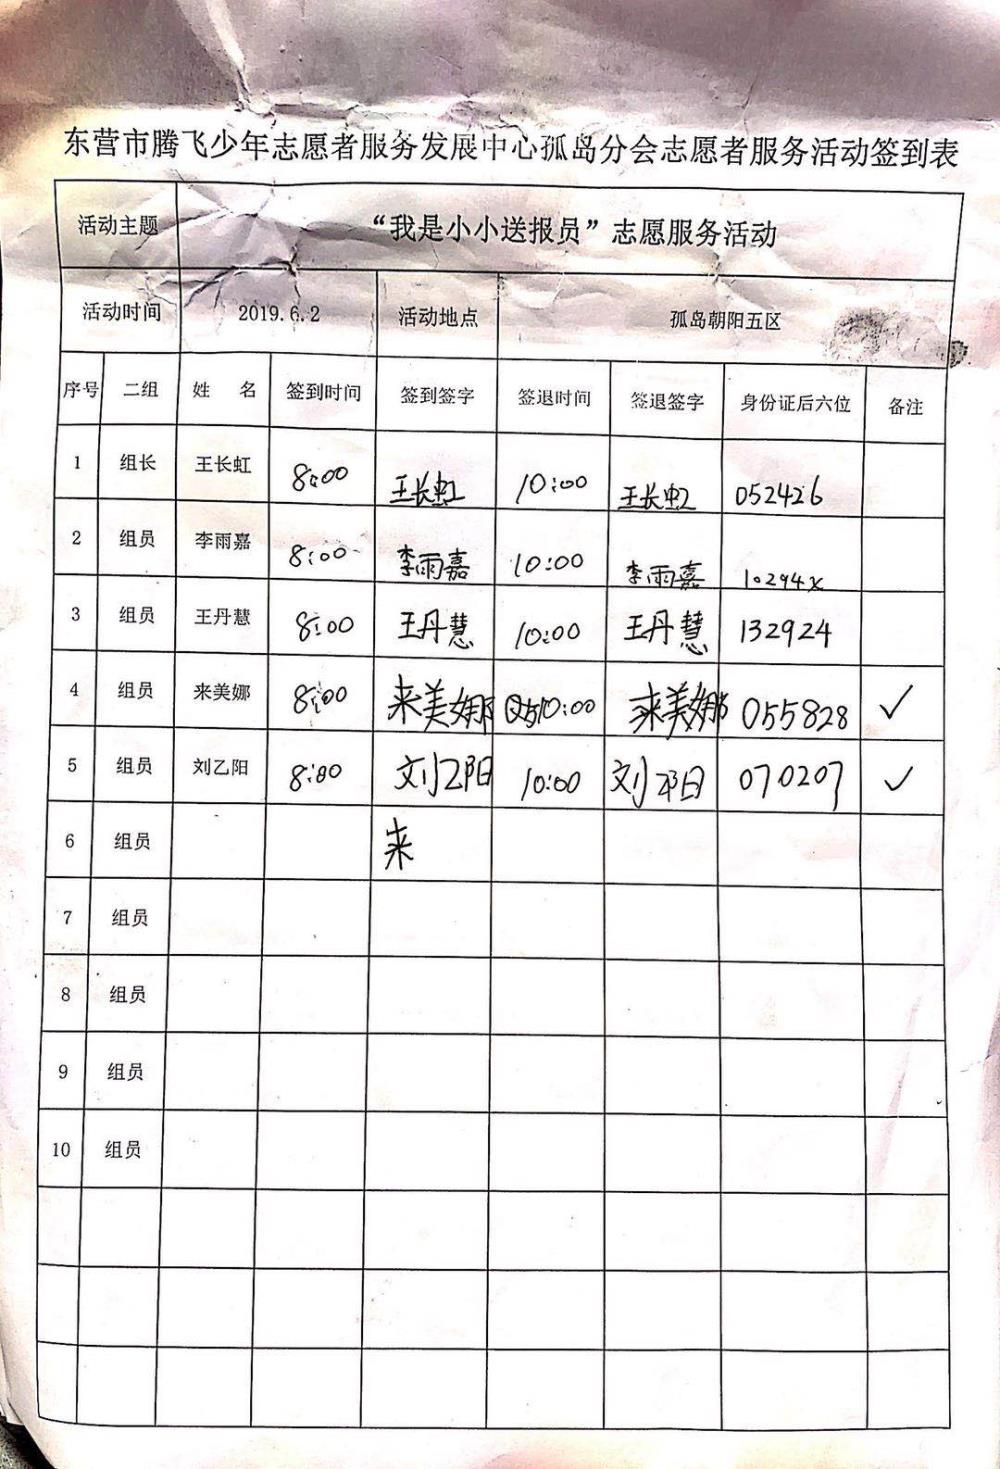 东营市腾飞少年志愿者服务发展中心孤岛分会志愿者服务活动签到表
活动主题 “我是小小送报员”志愿服务活动
活动时间 2019.6.2 活动地点 孤岛朝阳五区
序号 二组 姓 名 签到时间 签到签字 签退时间 签退签字 身份证后六位 备注
1 组长 王长虹 8:00 王长虹 10:00 王长虹 052426
2 组员 李雨嘉 8:00 李雨嘉 10:00 李雨嘉 10294x
3 组员 王丹慧 8:00 王丹慧 10:00 王丹慧 132924
4 组员 来美娜 8:00 来美娜 10:00 来美娜 055828 ✓
5 组员 刘乙阳 8:00 刘乙阳 10:00 刘乙阳 070207 ✓
6 组员 来
7 组员
8 组员
9 组员
10 组员